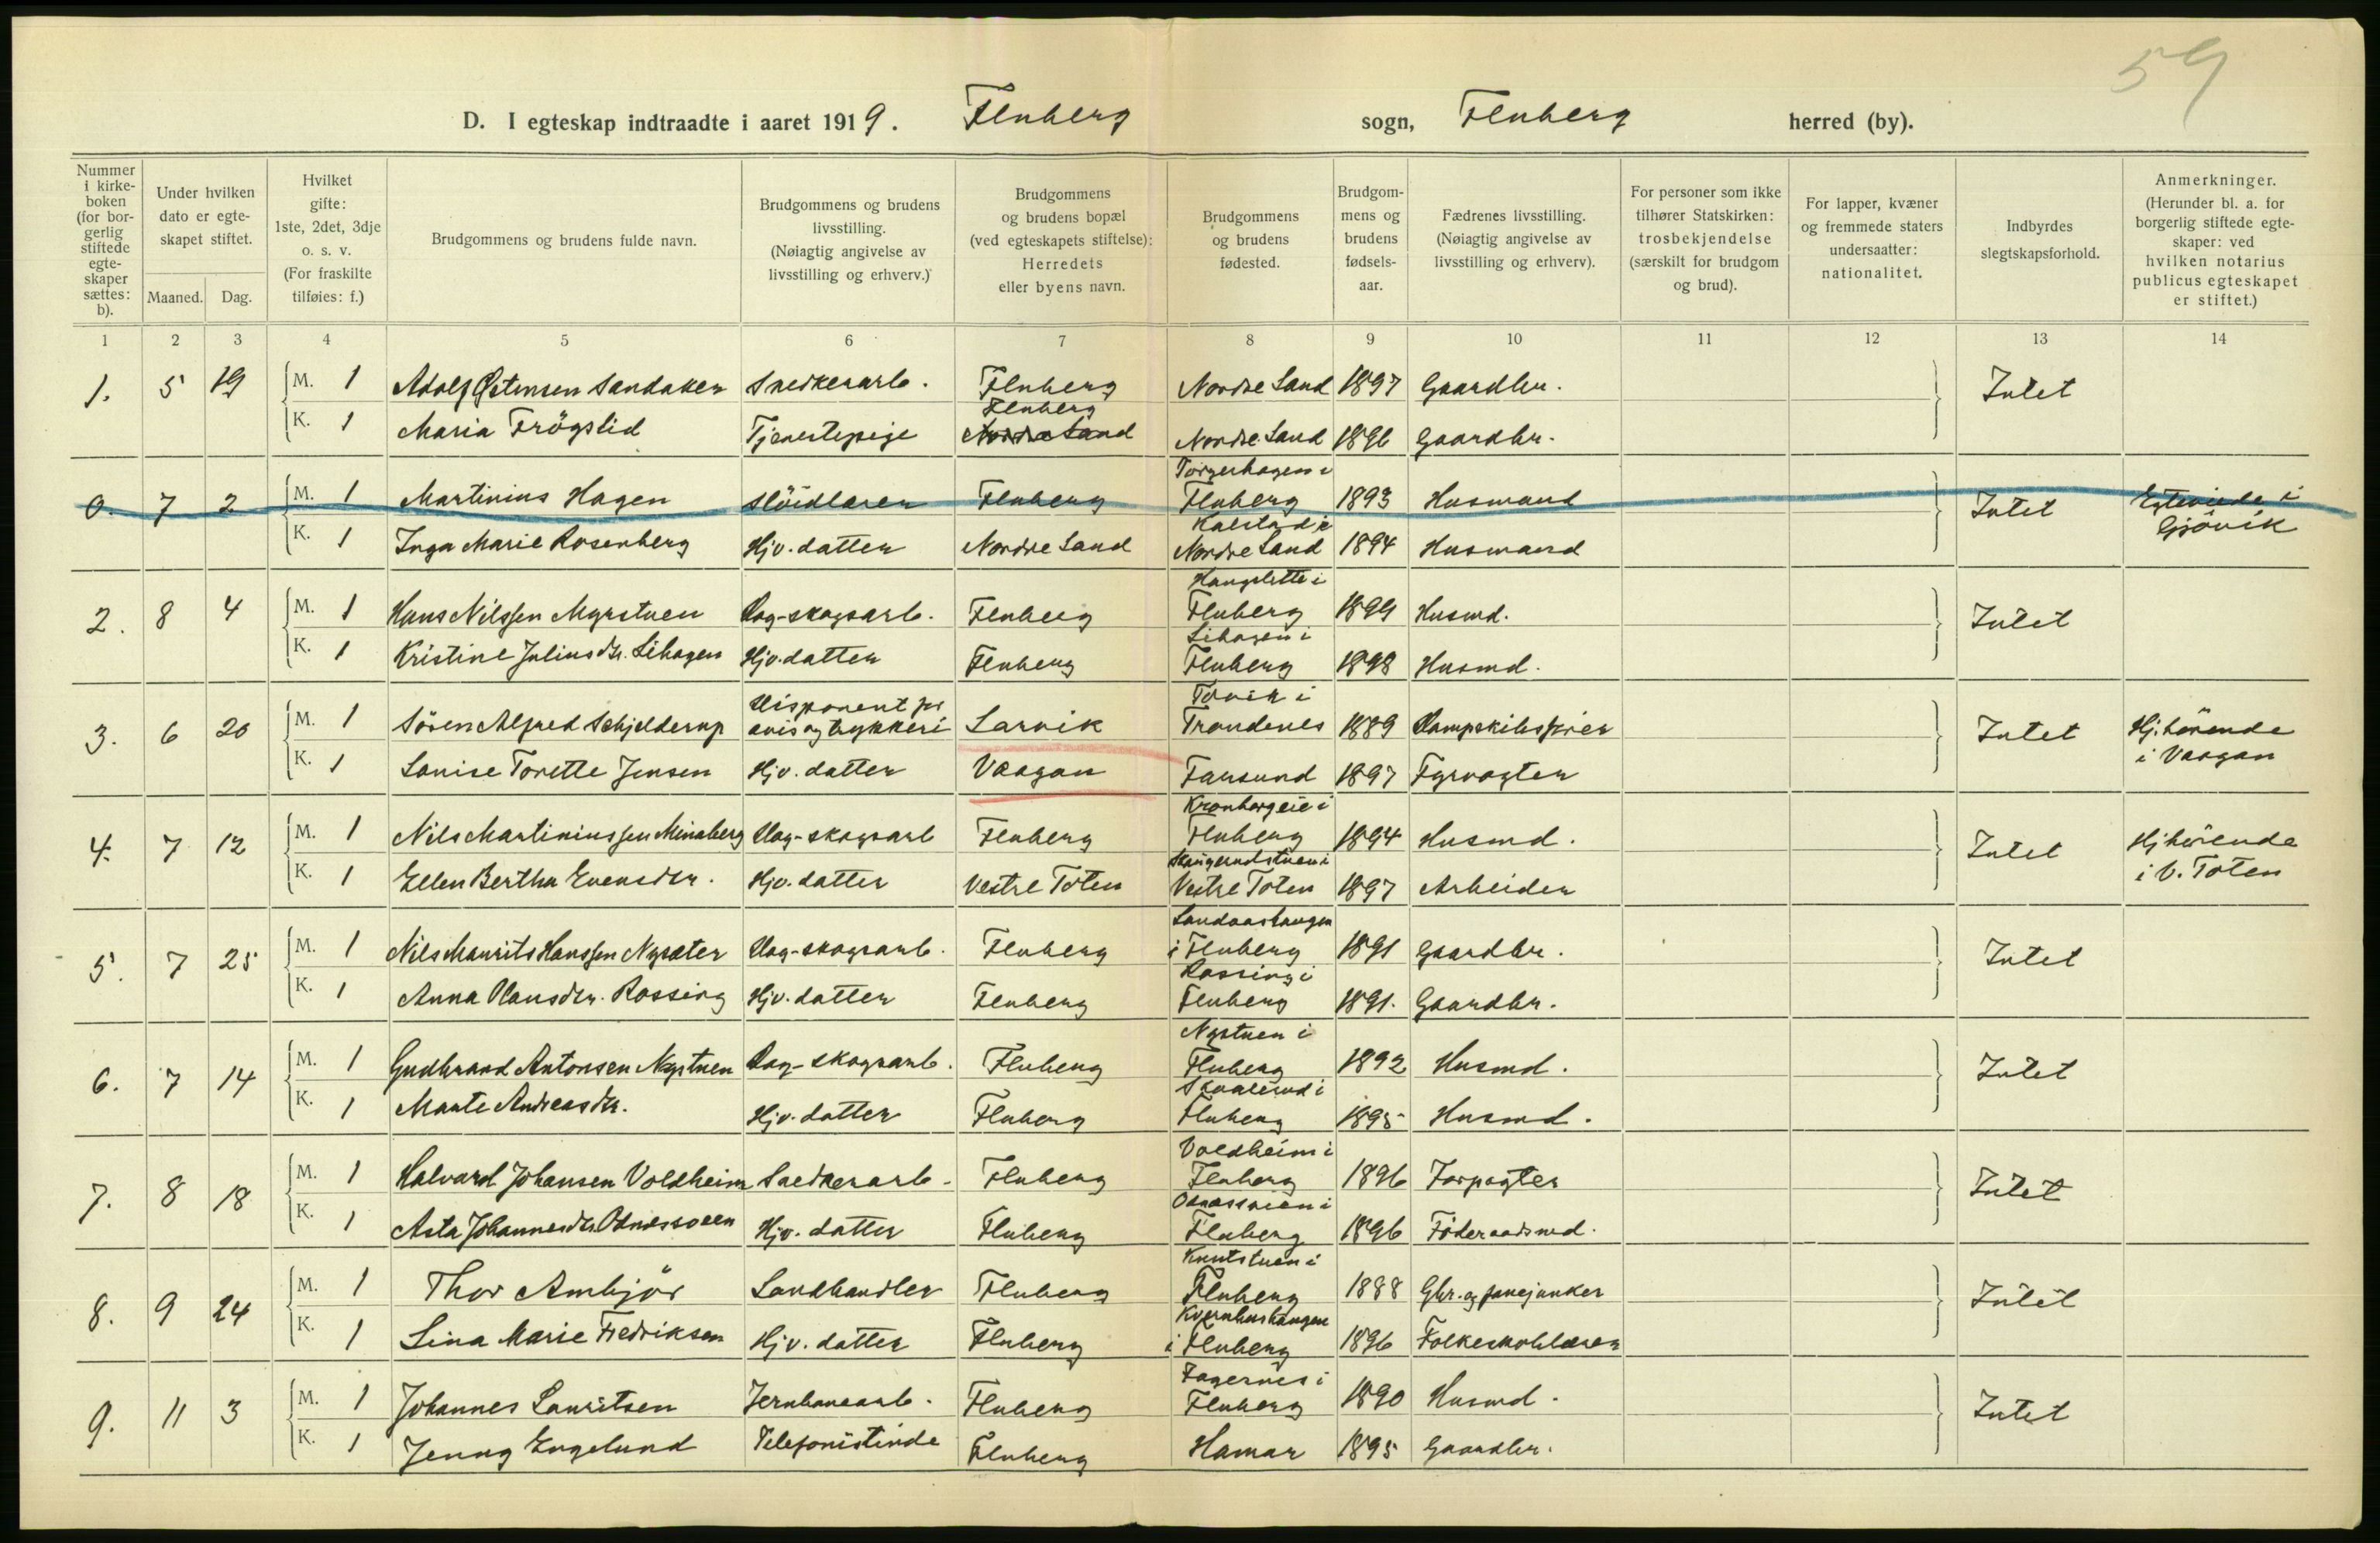 59
D. I egteskap indtraadte i aaret 1919. Fluberg sogn, Fluberg herred (by).
Nummer i kirke-boken (for bor-gerlig stiftede egte-skaper sættes: b).
Under hvilken dato er egte-skapet stiftet.
Maaned. Dag.
Hvilket gifte: 1ste, 2det, 3dje o. s. v. (For fraskilte tilføies: f.)
Brudgommens og brudens fulde navn.
Brudgommens og brudens livsstilling. (Nøiagtig angivelse av livsstilling og erhverv.)
Brudgommens og brudens bopæl (ved egteskapets stiftelse): Herredets eller byens navn.
Brudgommens og brudens fødested.
Brudgom-mens og brudens fødsels-aar.
Fædrenes livsstilling. (Nøiagtig angivelse av livsstilling og erhverv).
For personer som ikke tilhører Statskirken: trosbekjendelse (særskilt for brudgom og brud).
For lapper, kvæner og fremmede staters undersaatter: nationalitet.
Indbyrdes slegtskapsforhold.
Anmerkninger. (Herunder bl. a. for borgerlig stiftede egte-skaper: ved hvilken notarius publicus egteskapet er stiftet.)
1 2 3 4 5 6 7 8 9 10 11 12 13 14
1. 5 19 M. 1 Adolf Østensen Sandaker Snedkerarb. Fluberg Nordre Land 1897 Gaardbr. Intet
K. 1 Maria Frögslid Tjenestepige Fluberg Nordre Land Nordre Land 1896 Gaardbr.
0. 7 2 M. 1 Martinius Hagen Slöidlærer Fluberg Torgerhagen i Fluberg 1893 Husmand Intet Egteviede i Gjövik
K. 1 Inga Marie Rosenberg Hjv. datter Nordre Land Kalstad i Nordre Land 1894 Husmand
2. 8 4 M. 1 Hans Nilssen Myrstuen Dag-skogsarb. Fluberg Haugslette i Fluberg 1899 Husmd. Intet
K. 1 Kristine Juliusdtr. Lihagen Hjv. datter Fluberg Lihagen i Fluberg 1898 Husmd.
3. 6 20 M. 1 Sören Alfred Schjelderup Disponent for avis og trykkeri Larvik i Trondenes 1889 Dampskibsfører Intet Hj. hörende i Vaagan
K. 1 Louise Torette Jensen Hjv. datter Vaagan Farsund 1897 Fyrvogter
4. 7 12 M. 1 Nils Martiniussen Minaberg Dag-skogsarb Fluberg Kronborgeie i Fluberg 1894 Husmd. Intet Hjhörende i V. Toten
K. 1 Ellen Bertha Evensdtr. Hjv. datter Vestre Toten Vestre Toten 1897 Arbeider
5. 7 25 M. 1 Nils Maurits Hanssen Nysæter Dag-skogsarb. Fluberg Landaashaugen i Fluberg 1891 Gaardbr. Intet
K. 1 Anna Olausdtr. Rossing Hjv. datter Fluberg Rossing i Fluberg 1891. Gaardbr.
6. 7 14 M. 1 Gudbrand Antonsen Nystuen Dag-skogsarb. Fluberg Nystuen i Fluberg 1892 Husmd. Intet
K. 1 Marte Andreasdtr. Hjv. datter Fluberg i Fluberg 1895 Husmd.
7. 8 18 M. 1 Halvard Johansen Voldheim Snedkerarb. Fluberg Voldheim i Fluberg 1896 Forpagter Intet
K. 1 Asta Johannesdtr. Odnessveen Hjv. datter Fluberg Odnessveen i Fluberg 1896 Föderaadsmd.
8. 9 24 M. 1 Thor Ambjör Landhandler Fluberg Knutstuen i Fluberg 1888 Gbr. og fanejunker Intet
K. 1 Lina Marie Fredriksen Hjv. datter Fluberg Kvernhushaugen i Fluberg 1896 Folkeskolelærer
9. 11 3 M. 1 Johannes Lauritsen Jernbanearb. Fluberg Fagernes i Fluberg 1890 Husmd. Intet
K. 1 Jenny Engelund Telefonistinde Fluberg Hamar 1895 Gaardbr.